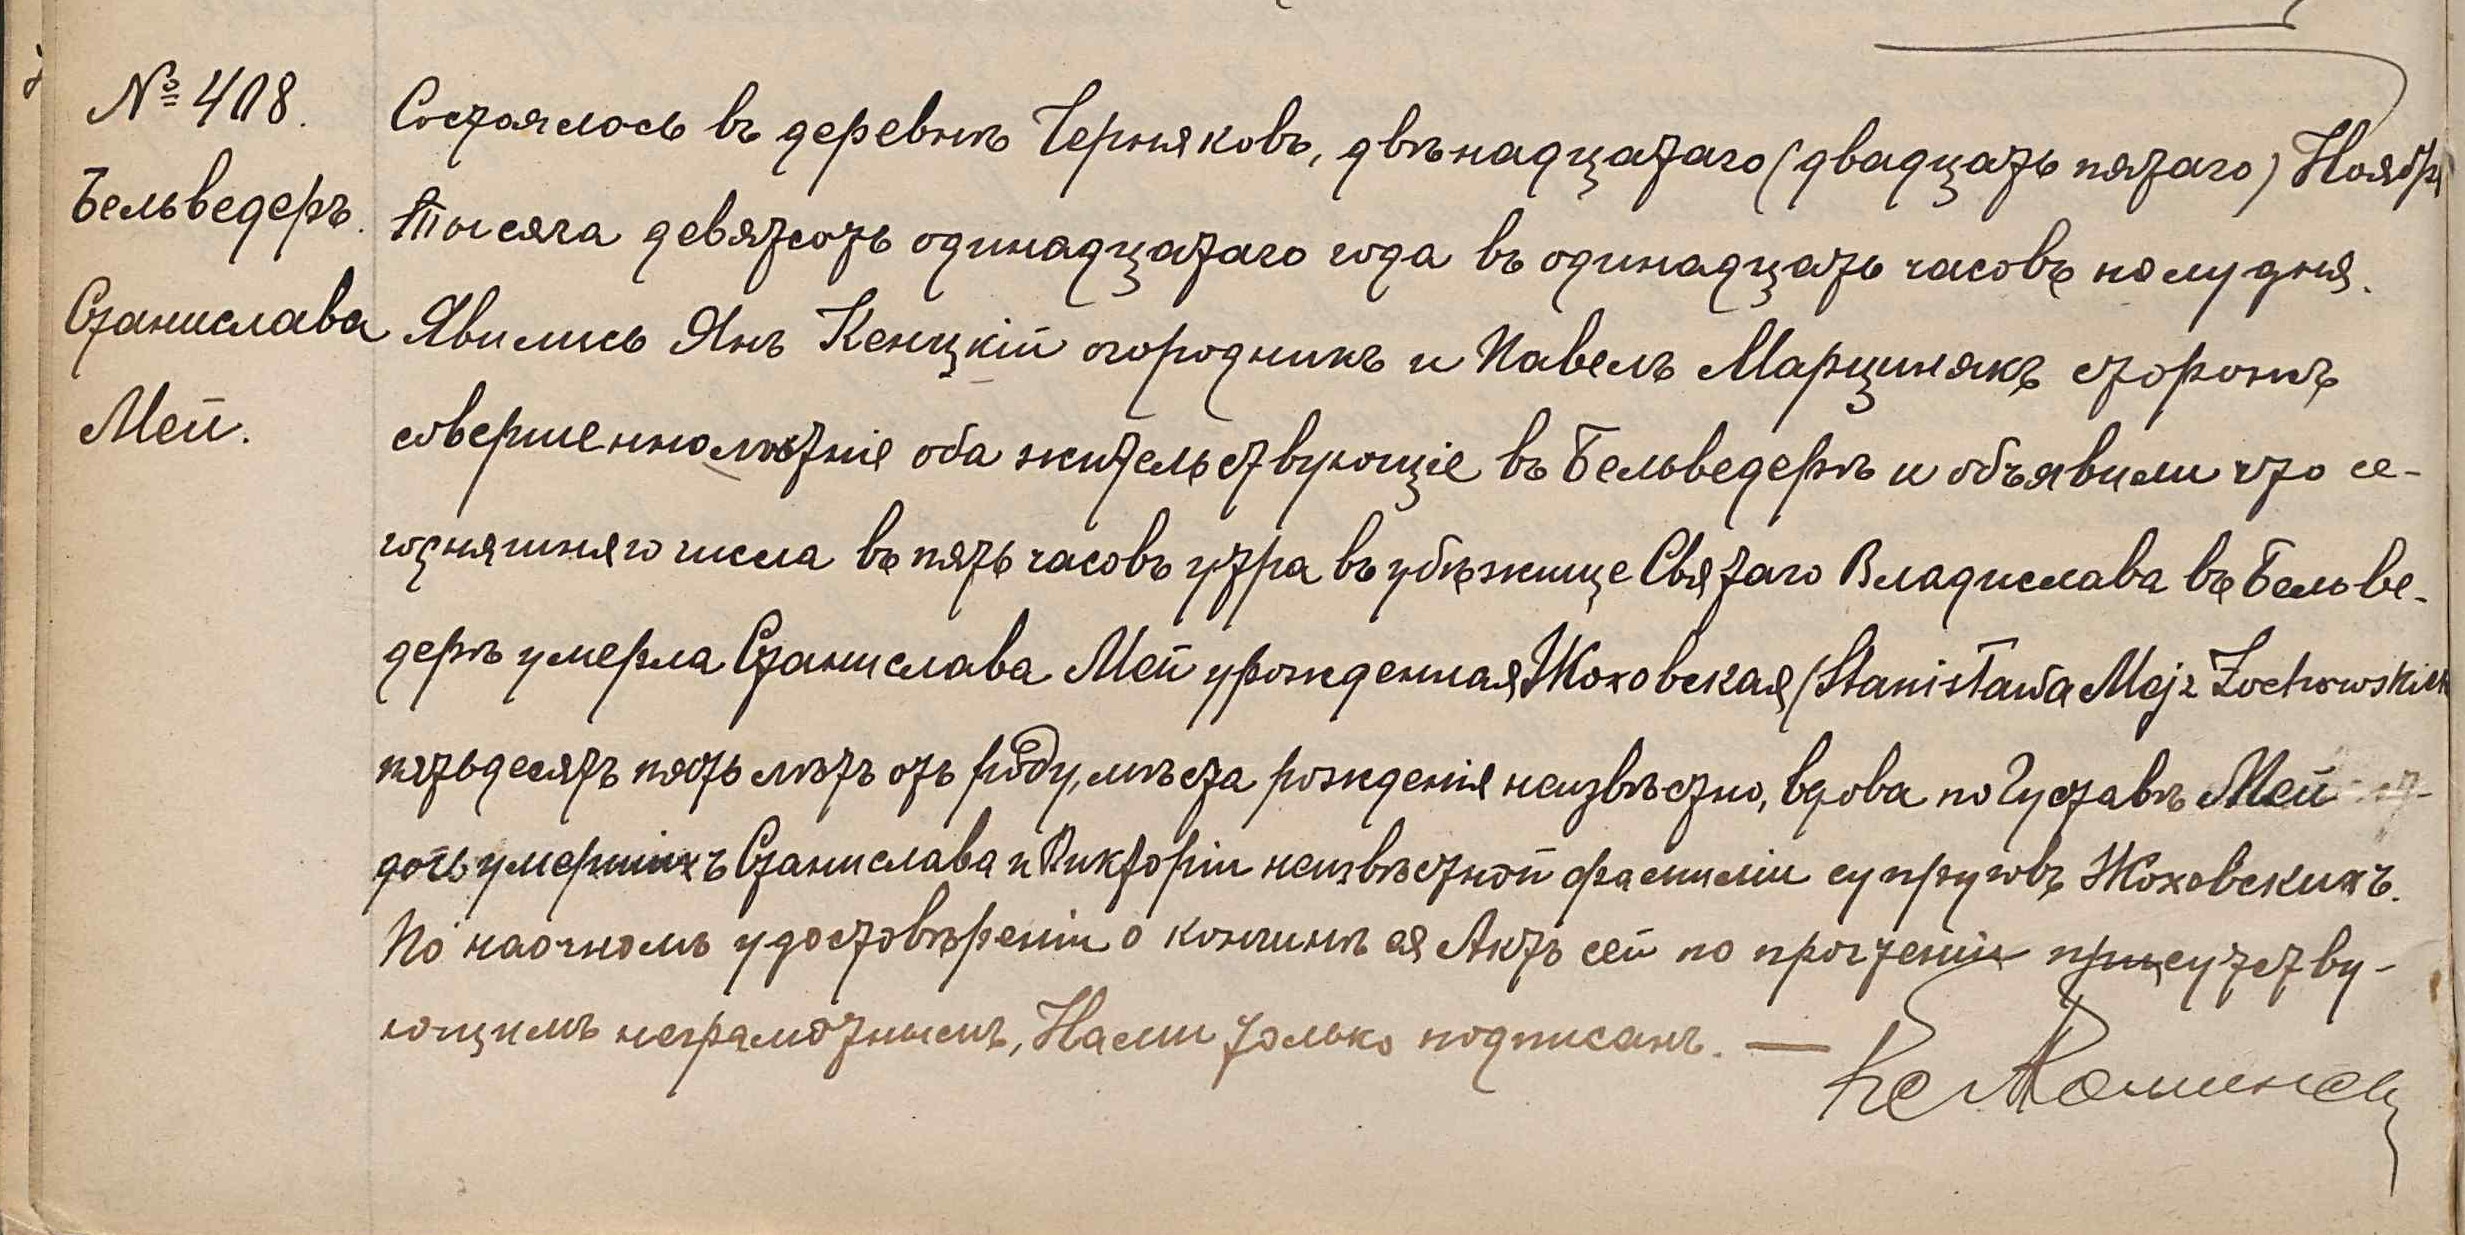 № 408.
Бельведеръ.
Станислава
Мей.
Состоялось въ деревнѣ Черняковъ, двѣнадцатаго (двадцать пятаго) Ноября
тысяча девятсотъ одинадцатаго года въ одинадцать часовъ полудня.
Явились Янъ Кенцкій огородникъ и Павелъ Марцинякъ сторожъ
совершеннолѣтніе оба жительствующіе въ Бельведерѣ и объявили что се-
годняшняго числа въ пять часовъ утра въ убѣжище Святаго Владислава въ Бельве-
дерѣ умерла Станислава Мей урожденная Жоховская (Stanisława Mej z Żochowskich
пятьдесятъ пять лѣтъ отъ роду, мѣста рожденія неизвѣстно, вдова по Густавѣ Мей
дочь умершихъ Станислава и Викторіи неизвѣстной фамиліи супруговъ Жоховскихъ.
По наочномъ удостовѣреніи о кончинѣ ея Актъ сей по прочтеніи присутству-
ющимъ неграмотнымъ, Нами только подписанъ. —